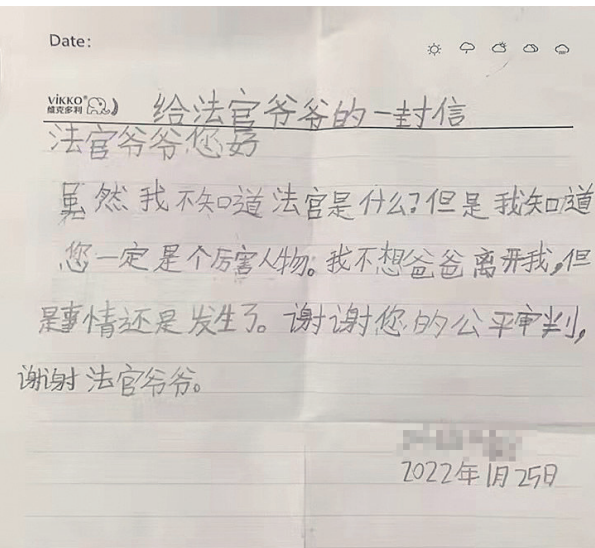 Date:
VIKKO®
维克多利
给法官爷爷的一封信
法官爷爷您好
虽然我不知道法官是什么?但是我知道
您一定是个厉害人物。我不想爸爸离开我,但
是事情还是发生了。谢谢您的公平审判,
谢谢法官爷爷。
2022年1月25日